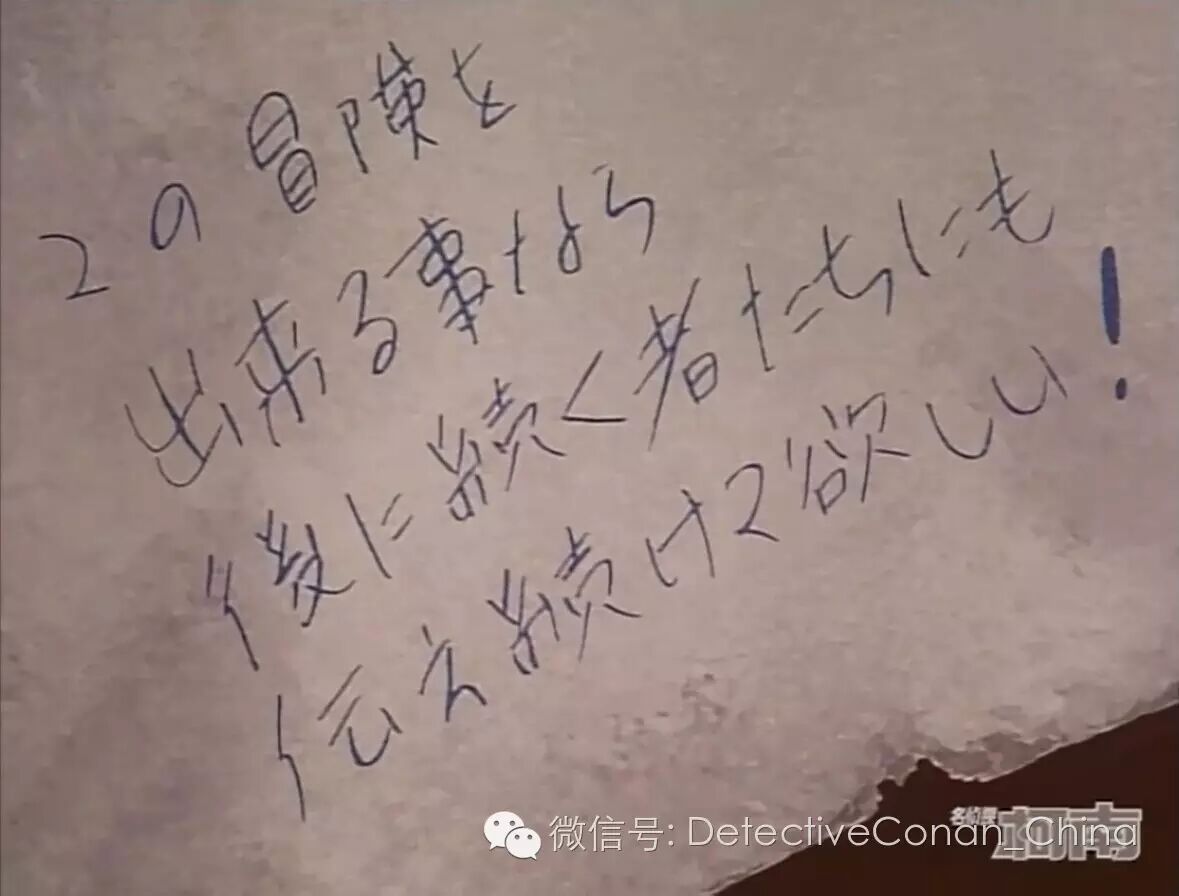 この冒険を
出来る事なら
後に続く者たちにも
伝え続けて欲しい!
微信号: DetectiveConan_China
名侦探柯南